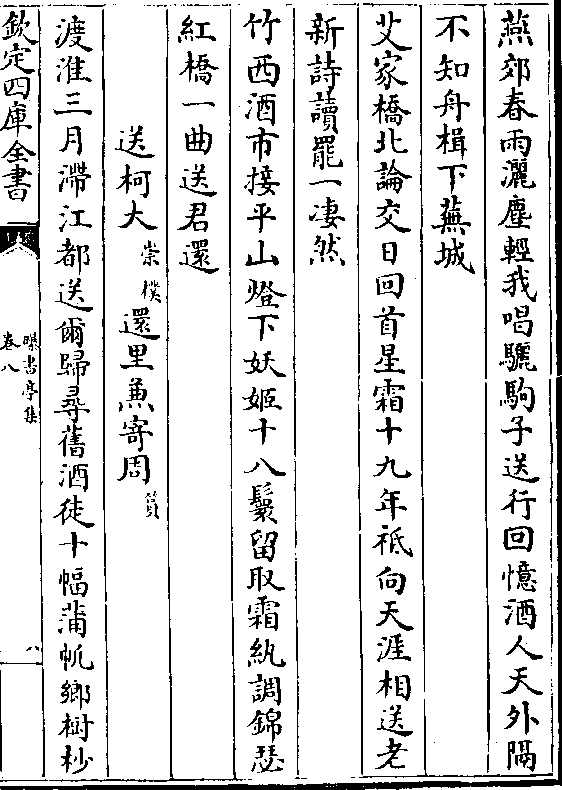 燕郊春雨灑塵輕我唱驪駒子送行回憶酒人天外隔
不知舟楫下蕪城
艾家橋北論交日回首星霜十九年祗向天涯相送老
新詩讀罷一凄然
竹西酒市接平山燈下妖姬十八鬟留取霜紈調錦瑟
紅橋一曲送君還
送柯大崇樸還里兼寄周篔
渡淮三月滯江都送爾歸尋舊酒徒十幅蒲帆鄉樹杪
欽定四庫全書
曝書亭集
卷八
八